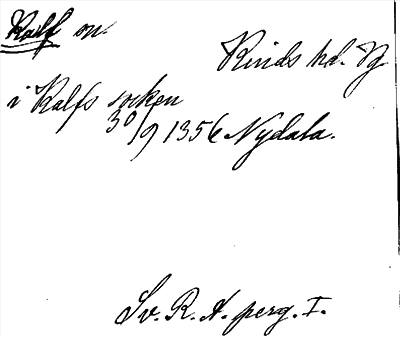 Kalf sn.
Kinds hd. Vg
i Kalfs socken
30/9 1356 Nydala.
Sv. R. A. perg. I.